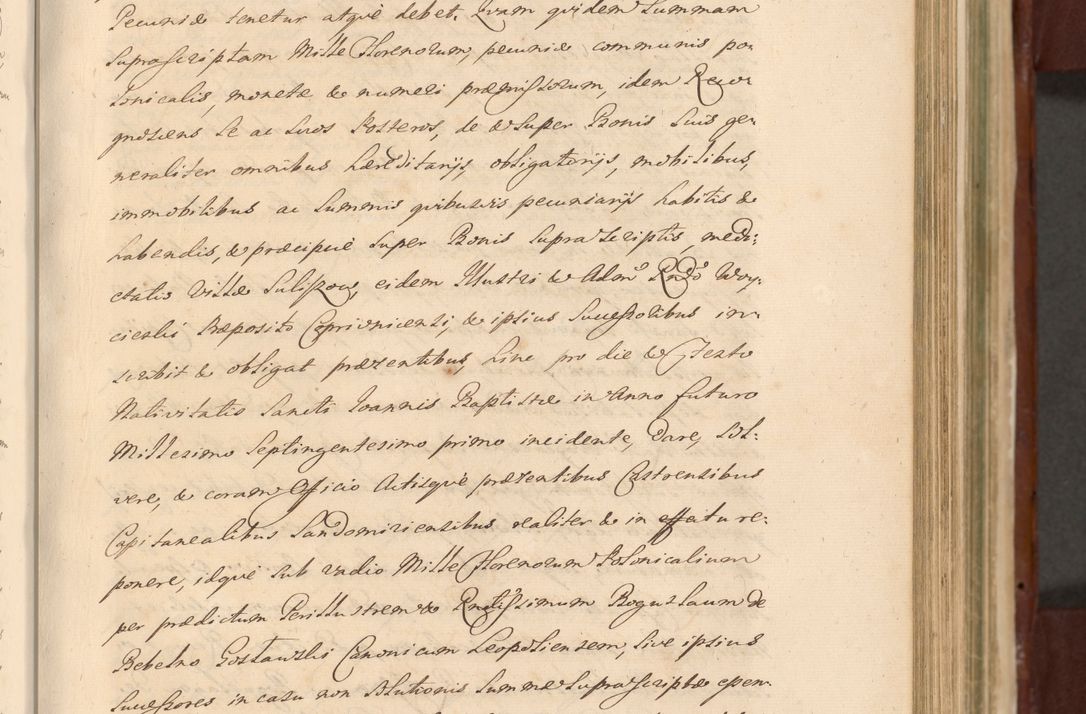 Pecuniæ tenetur atque debet. Quam quidem Summam
suprascriptam Mille Florenorum, pecuniæ communis po-
lonicalis, monetæ & numeri præmissorum, idem Recog-
gnoscens se ac suos Posteros, de & super Bonis suis ge-
neraliter omnibus hæreditarijs, obligatorijs, mobilibus,
immobilibus ac Summis quibusvis pecuniarijs habitis &
habendis, & præcipuè super Bonis suprascriptis, medi-
etatis Villæ Suliszow, eidem Illustri & Admo Rndo Woy-
cieski Præposito Coprivnicensi, & ipsius Successoribus in-
scribit & obligat præsentibus, hinc pro die & festo
Nativitatis Sancti Ioannis Baptistæ in Anno futuro
Millesimo Septingentesimo primo incidente, dare, sol-
vere, & coram Officio Actisque præsentibus Castrensibus
Capitanealibus Sandomiriensibus realiter & in effectu re-
ponere, idquè sub vadio Mille Florenorum Polonicalium
per prædictum Perillustrem & Rndissimum Boguslaum de
Bebelno Gostawski Canonicum Leopoliensem, sive ipsius
Successores in casu non solutionis Summæ suprascriptæ essen-